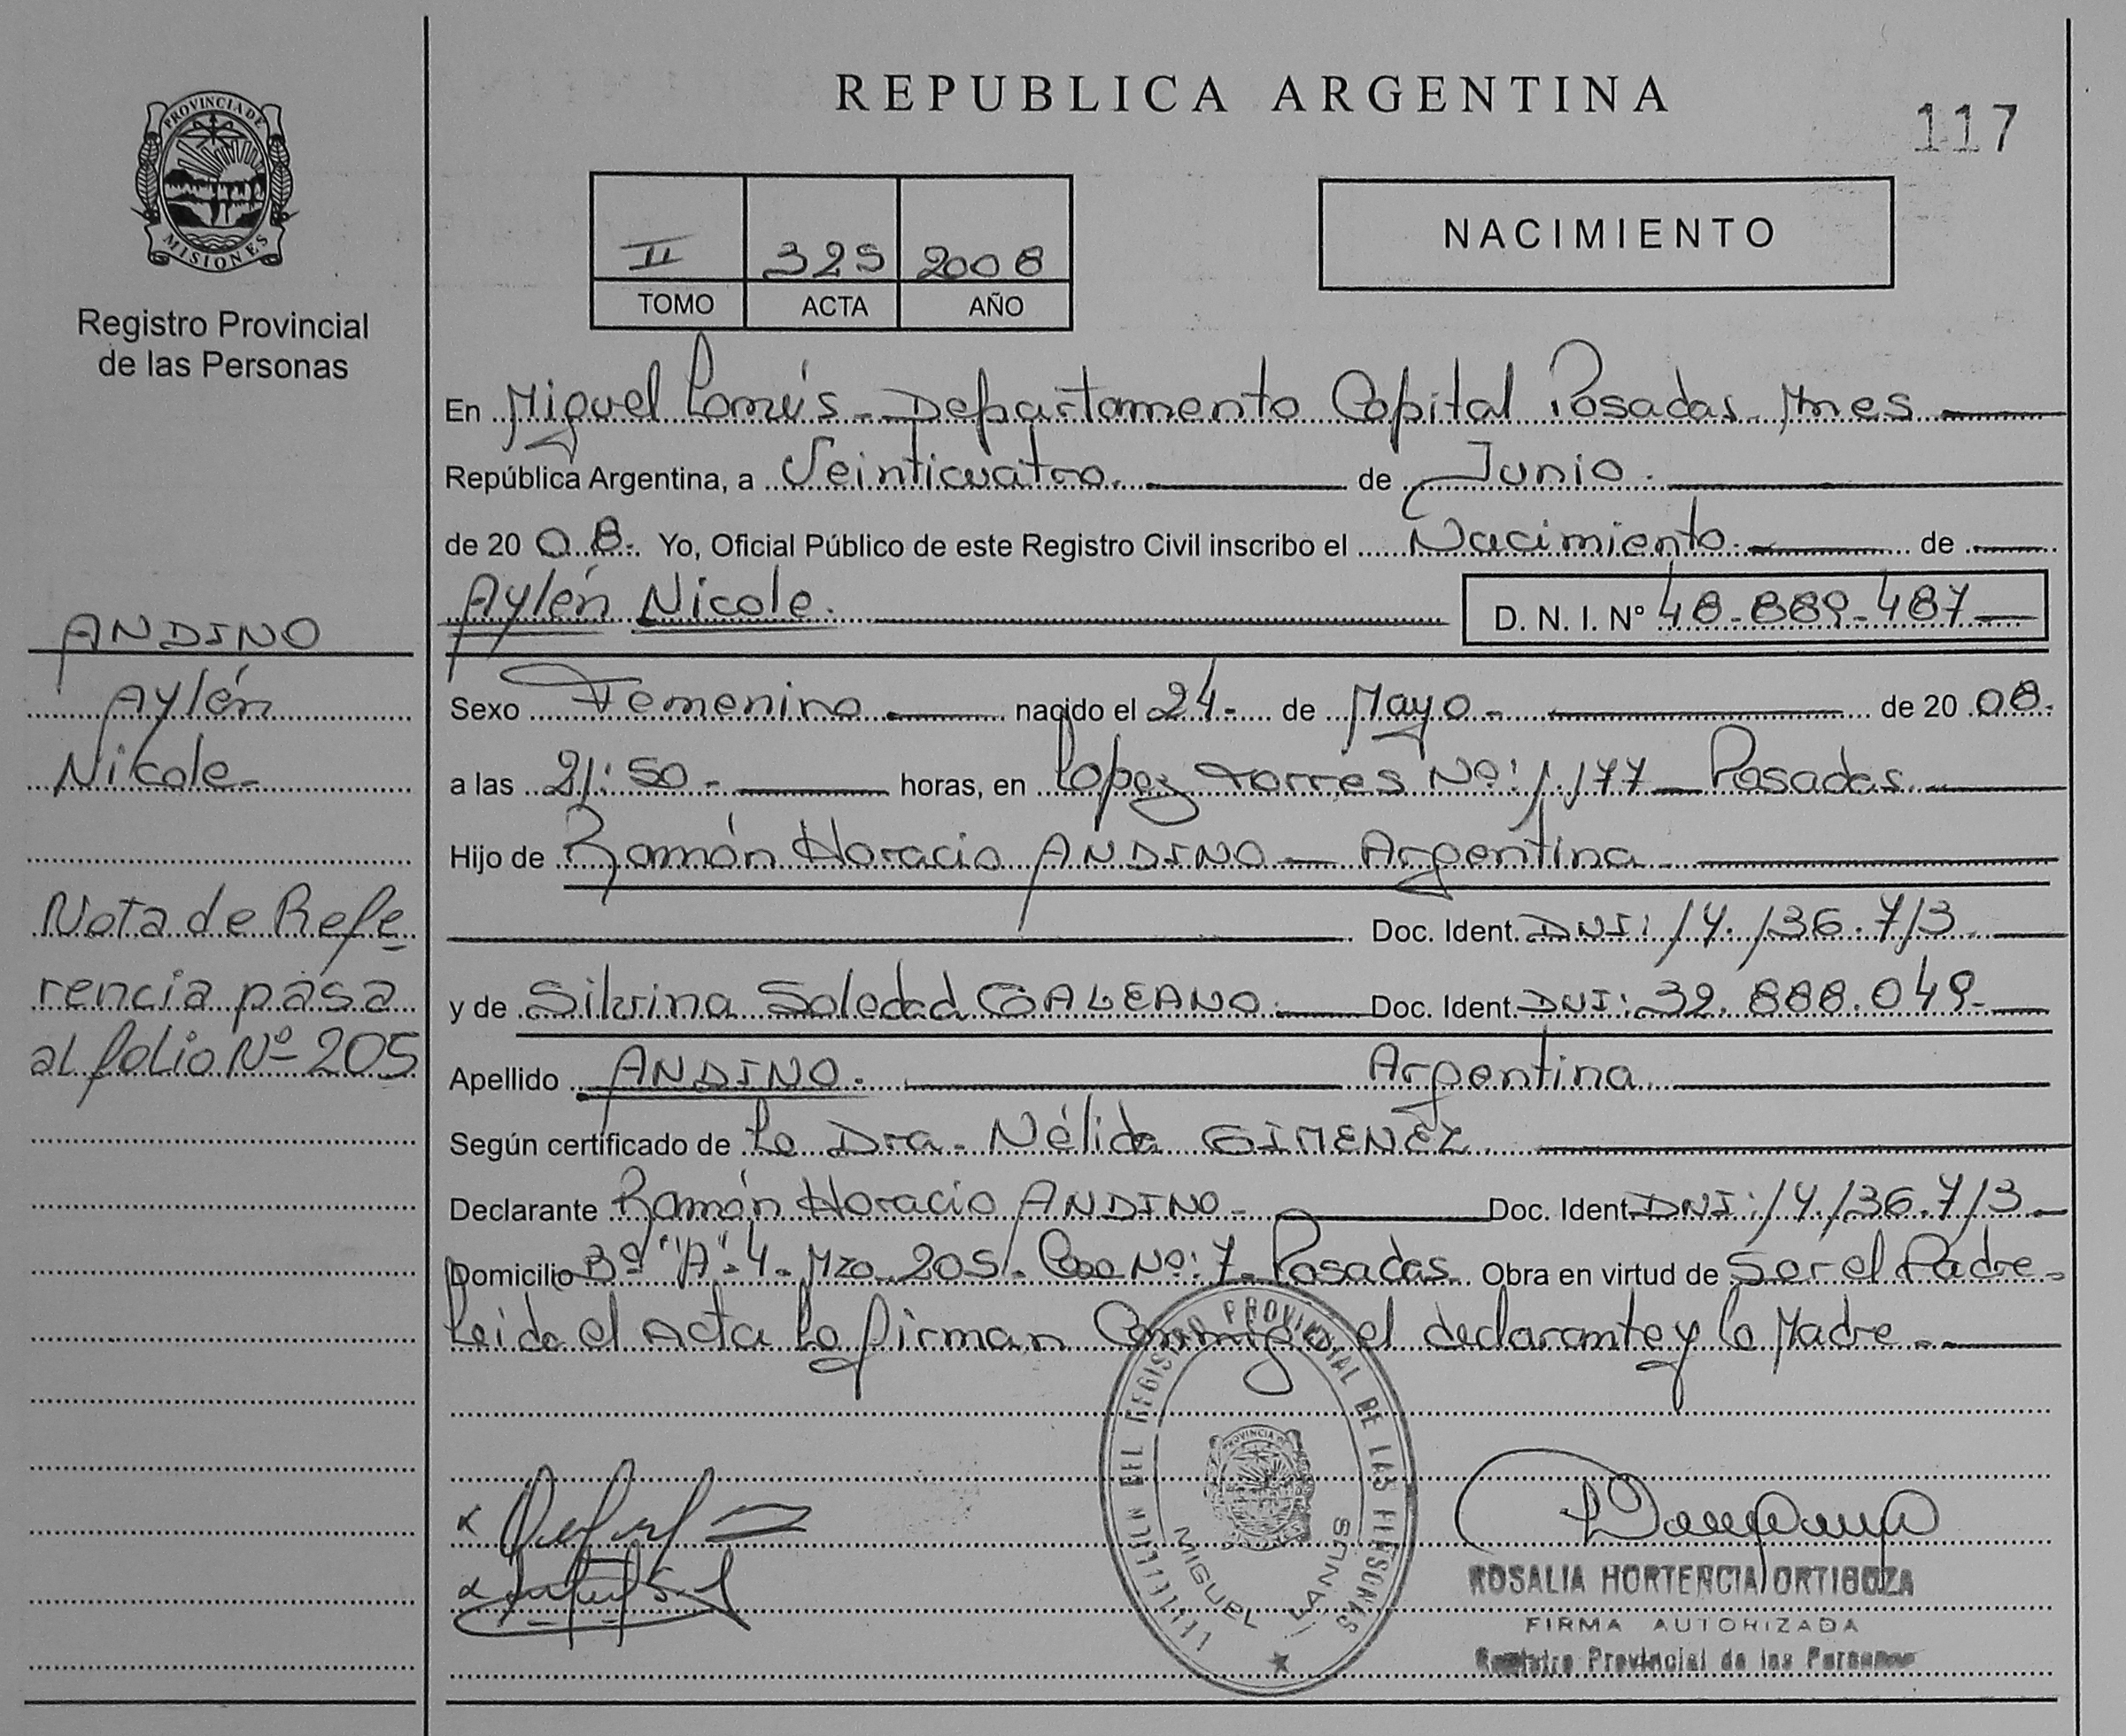 PROVINCIA DE
MISIONES
Registro Provincial
de las Personas
REPUBLICA ARGENTINA
117
II 325 2008
TOMO ACTA AÑO
NACIMIENTO
En Miguel Lanús - Departamento Capital Posadas - Mnes
República Argentina, a Veinticuatro. de Junio.
de 20 08. Yo, Oficial Público de este Registro Civil inscribo el Nacimiento. de
Aylén Nicole. D. N. I. Nº 48.889.487
ANDINO
Aylén
Nicole-
Sexo Femenino nacido el 24- de Mayo- de 20 08.
a las 21:50- horas, en Lopez Torres Nº: 1.177 Posadas
Hijo de Ramón Horacio ANDINO - Argentina
Doc. Ident. DNI: 14.136.713
y de Silvina Soledad GALEANO. Doc. Ident. DNI: 32.888.049-
Nota de Refe
rencia pasa
al folio Nº 205
Apellido ANDINO. Argentina
Según certificado de La Dra. Nélida GIMENEZ
Declarante Ramón Horacio ANDINO- Doc. Ident. DNI: 14.136.713
Domicilio Bº "A"-4- Mza 205- Casa Nº: 7- Posadas Obra en virtud de Ser el Padre-
Leida el Acta la firman Conmigo el declarante y la Madre-
DEL REGISTRO PROVINCIAL DE LAS PERSONAS
PROVINCIA DE
MIGUEL LANUS
ROSALIA HORTENCIA ORTIGOZA
FIRMA AUTORIZADA
Registro Provincial de las Personas